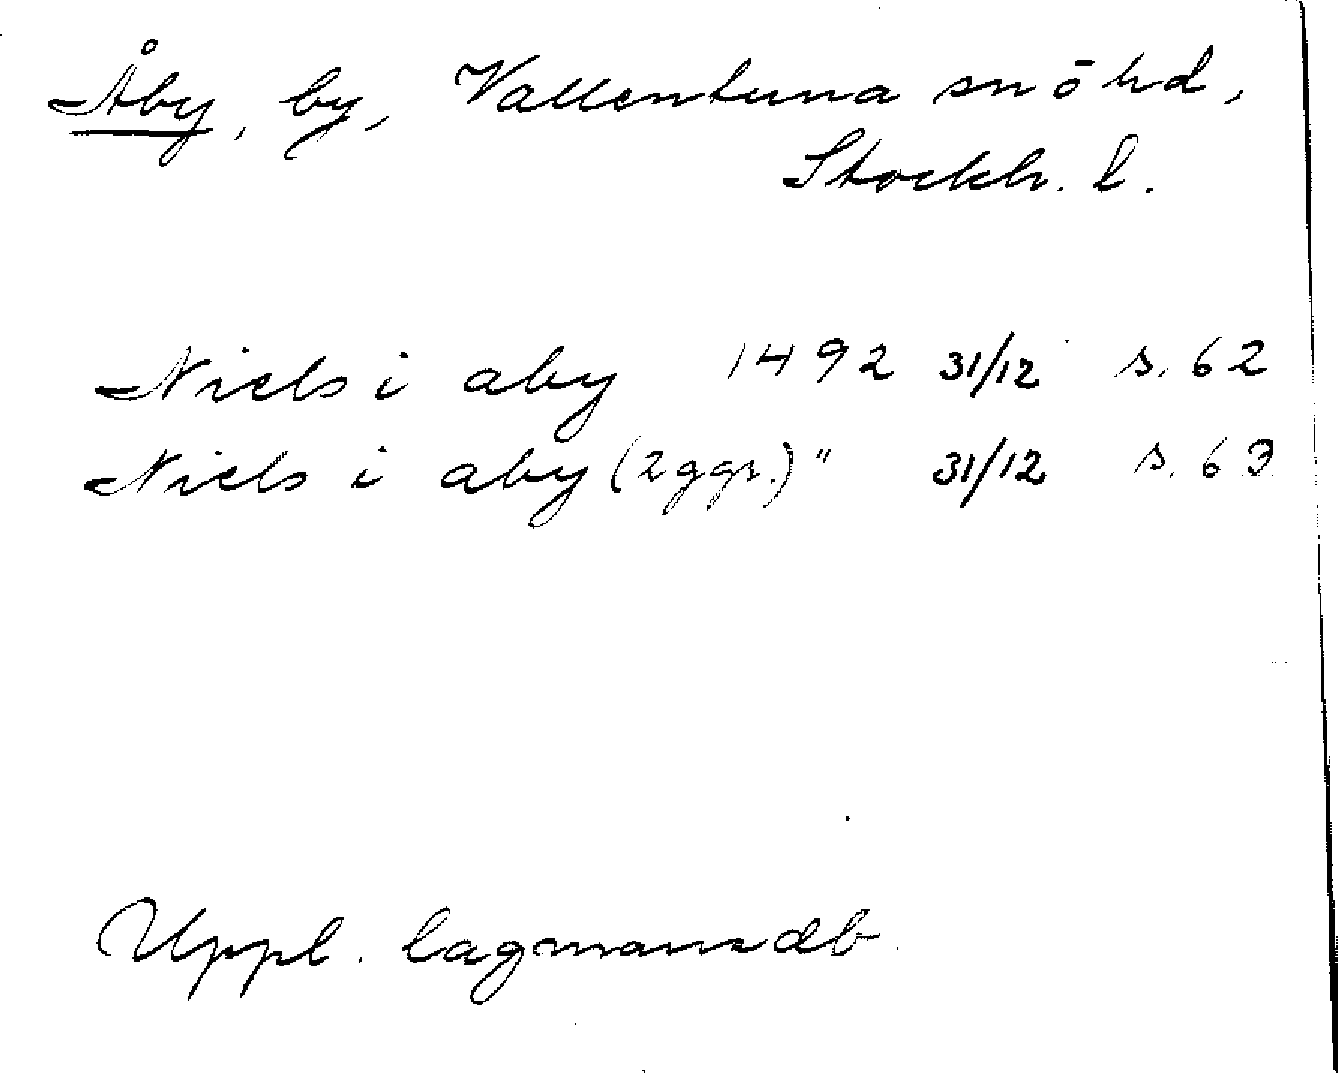 Åby, by, Vallentuna sn ō hd,
Stockh. l.
Niels i aby 1492 31/12 s. 62
Niels i aby (2 ggr.) " 31/12 s. 63
Uppl. lagmansdb